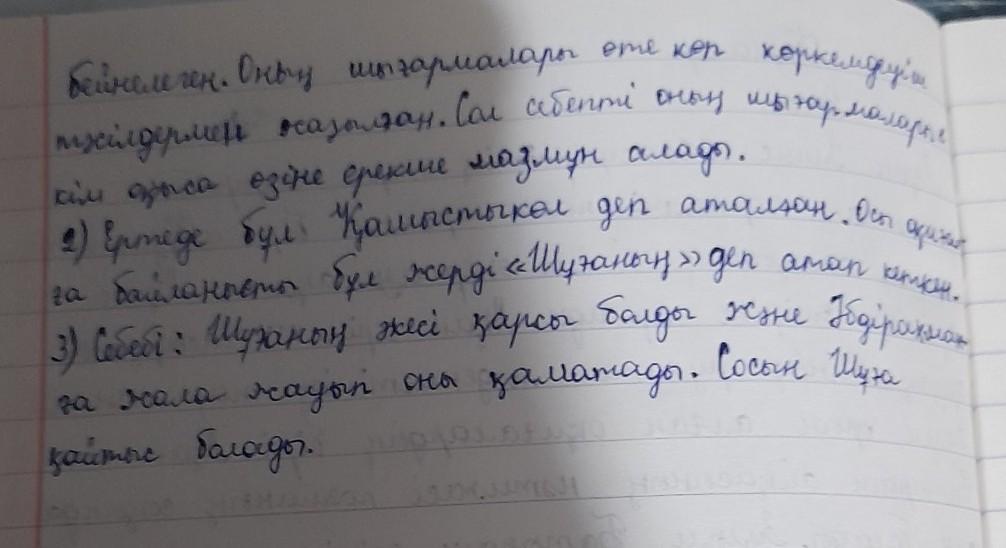 бейнелеген. Оның шығармалары өте көп көркемдеуіш
тәсілдермен жазылған. Сол себепті оның шығармаларын
кім оқыса өзіне ерекше мазмұн алады.
2) Ертеде бұл Қамыстыкөл деп аталған. Осы оқиға
ға байланысты бұл жерді «Шұғаның» деп атап кеткен.
3) Себебі: Шұғаның әкесі қарсы болды және Әбдірахман
ға жала жауып оны қаматады. Сосын Шұға
қайтыс болады.